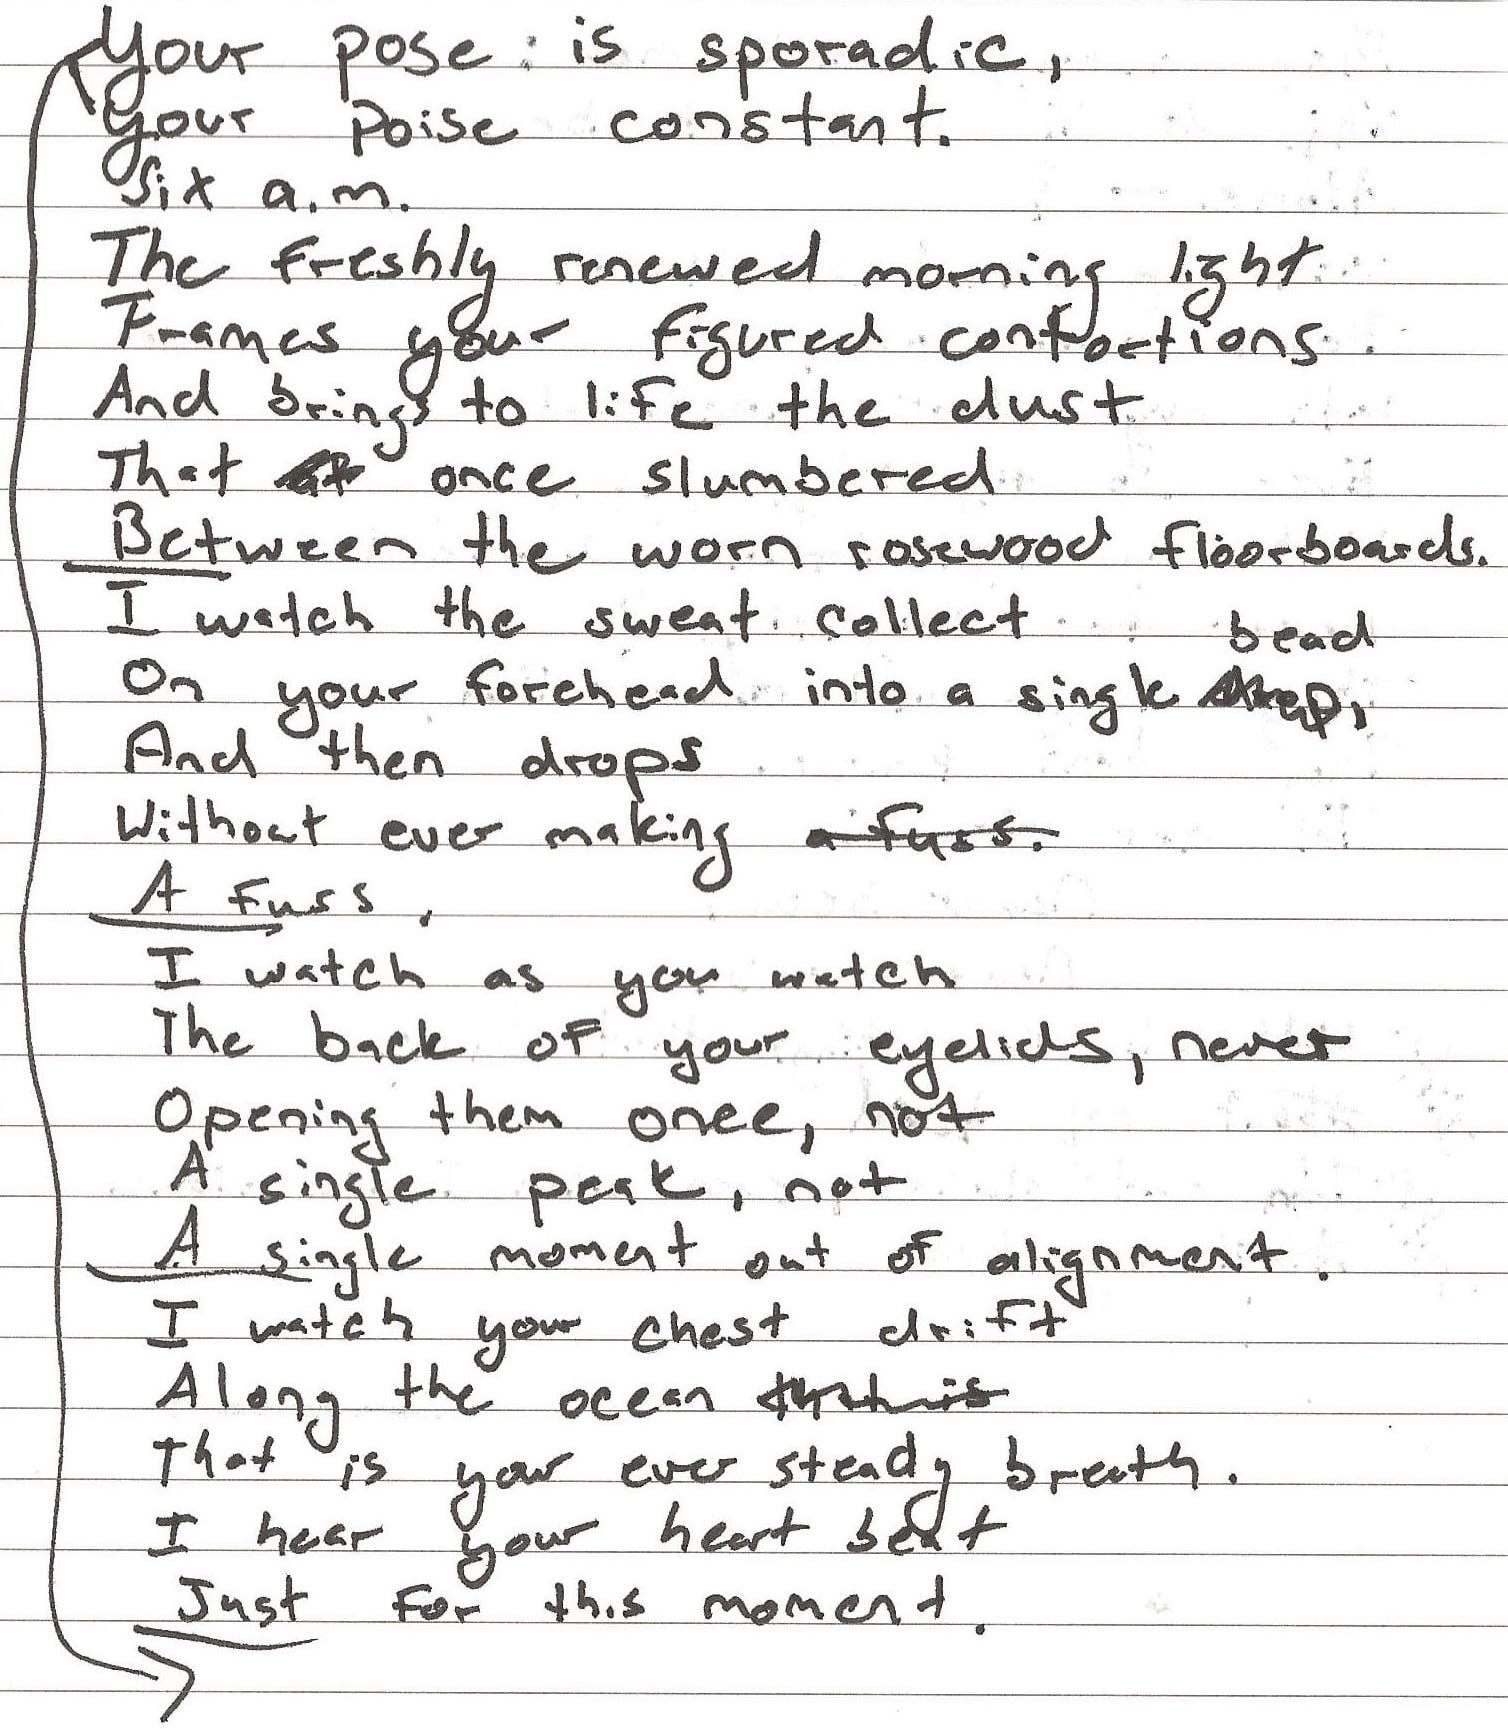 Your pose is sporadic,
Your poise constant.
Six a.m.
The freshly renewed morning light
Frames your figured contortions
And brings to life the dust
That once slumbered
Between the worn rosewood floorboards.
I watch the sweat collect
bead
On your forehead into a single drop,
And then drops
Without ever making a fuss.
A fuss.
I watch as you watch
The back of your eyelids, never
Opening them once, not
A single peak, not
A single moment out of alignment.
I watch your chest drift
Along the ocean
That is your ever steady breath.
I hear your heart beat
Just for this moment.